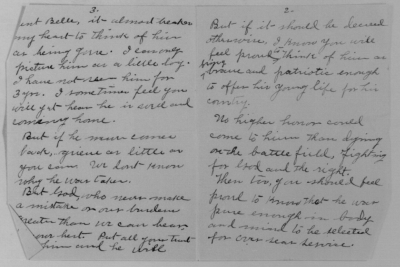 3.
Aunt Belle, it almost breaks
my heart to think of him
as being gone. I can only
picture him as a little boy.
I have not seen him for
3 yrs. I sometimes feel you
will yet hear he is and
coming home.
But if he never comes
back, grieve as little as
you can. We dont know
why he was taken.
But God, who never makes
a mistake our burdens
greater than we can bear
best. But all your trust
him and he will
2.
But if it should be decreed
otherwise, I know you will
feel proud to think of him as
brave and patriotic enough
to offer his young life for his
country.
No higher honor could
come to him than dying
on the battle field, fighting
for God and the right.
Then too, you should feel
proud to know that he was
pure enough in body
and mind to be selected
for over seas service.